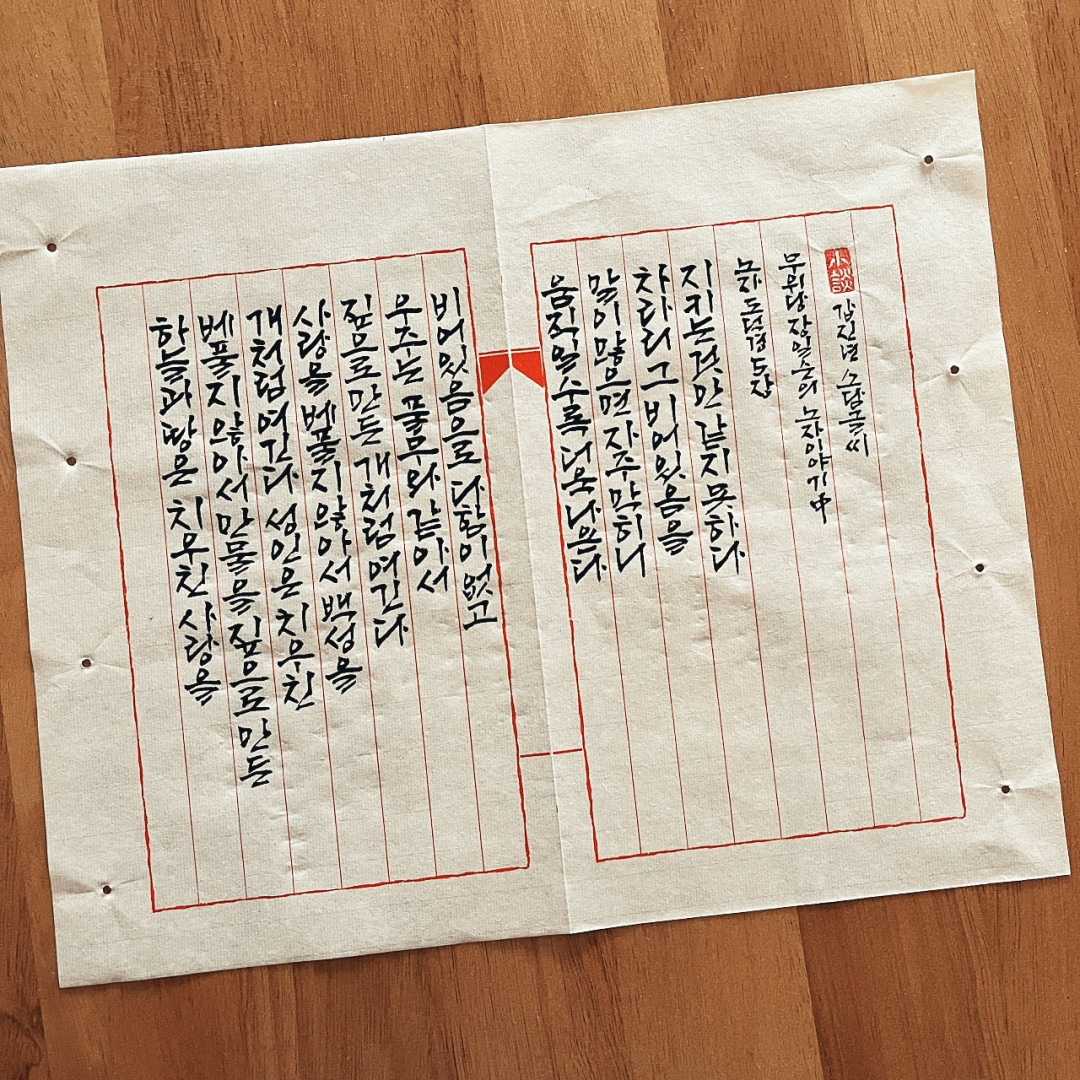 하늘과 땅은 치우친 사랑을
베풀지 않아서 만물을 짚으로 만든
개처럼 여긴다 성인은 치우친
사랑을 베풀지 않아서 백성을
짚으로 만든 개처럼 여긴다
우주는 풀무와 같아서
비어있음으로 다함이 없고
움직일수록 더욱 나온다
말이 많으면 자주 막히니
차라리 그 비어있음을
지키는것만 같지 못하다
노자 도덕경 5장
무위당 장일순의 노자이야기 中
小談 갑진년 소담글씨